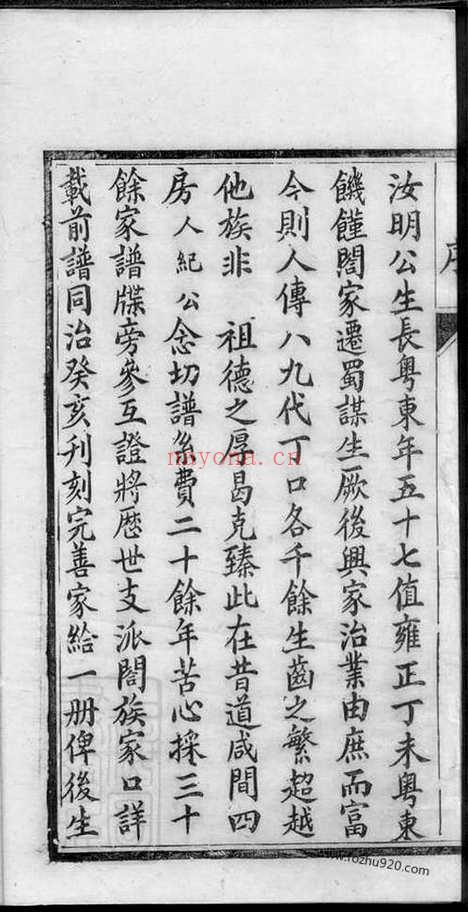 汝明公生長粵東年五十七值雍正丁未粵東
饑饉閤家遷蜀謀生厥後興家治業由庶而富
今則人傳八九代丁口各千餘生齒之繁超越
他族非 祖德之厚曷克臻此在昔道咸間四
房人紀公念切譜系費二十餘年苦心採三十
餘家譜牒旁參互證將歷世支派閤族家口詳
載前譜同治癸亥刋刻完善家給一册俾後生
nbyona.cn
www.rozhu920.com